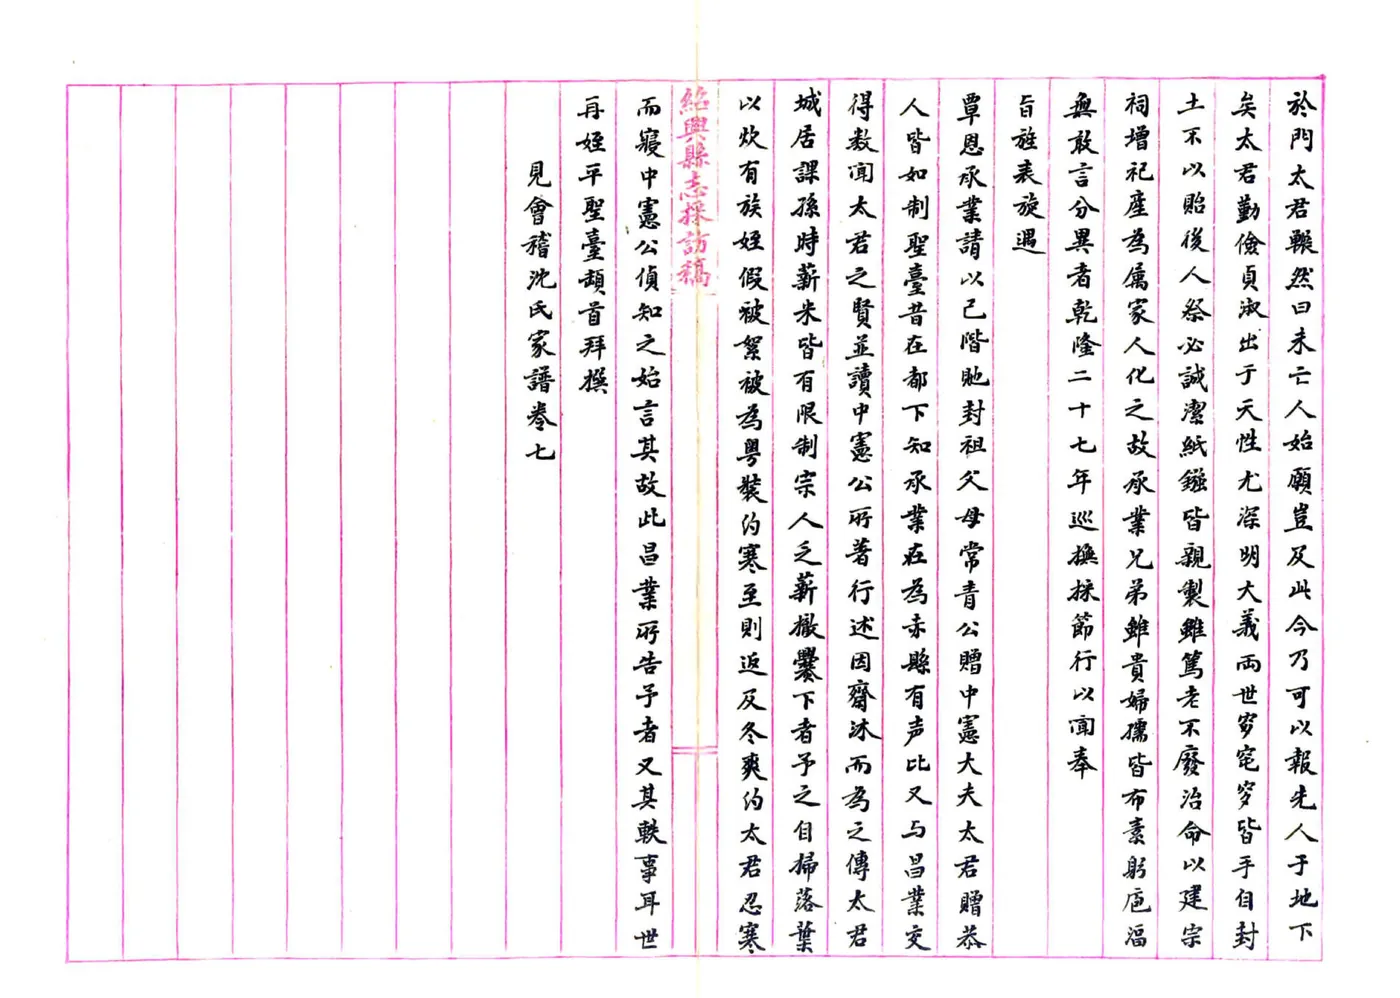 於門太君囅然曰未亡人始願豈及此今乃可以報先人于地下
矣太君勤儉貞淑出于天性尤深明大義兩世窀穸皆手自封
土不以貽後人祭必誠潔紙鏹皆親製雖篤老不廢治命以建宗
祠增祀産為属家人化之故承業兄弟雖貴婦孺皆布素躬庖湢
無敢言分異者乾隆二十七年巡撫採節行以聞奉
旨旌表旋遇
覃恩承業請以己階貤封祖父母常青公贈中憲大夫太君贈恭
人皆如制聖臺昔在都下知承業在為赤縣有声比又与昌業交
得数聞太君之賢並讀中憲公所著行述因齋沐而為之傳太君
城居課孫時薪米皆有限制宗人乏薪撤爨下者予之自掃落葉
以炊有族姪假被絮被為粵裝約寒至則返及冬爽約太君忍寒
紹興縣志採訪稿
而寢中憲公偵知之始言其故此昌業所告予者又其軼事耳世
再姪平聖臺頓首拜撰
見會稽沈氏家譜卷七